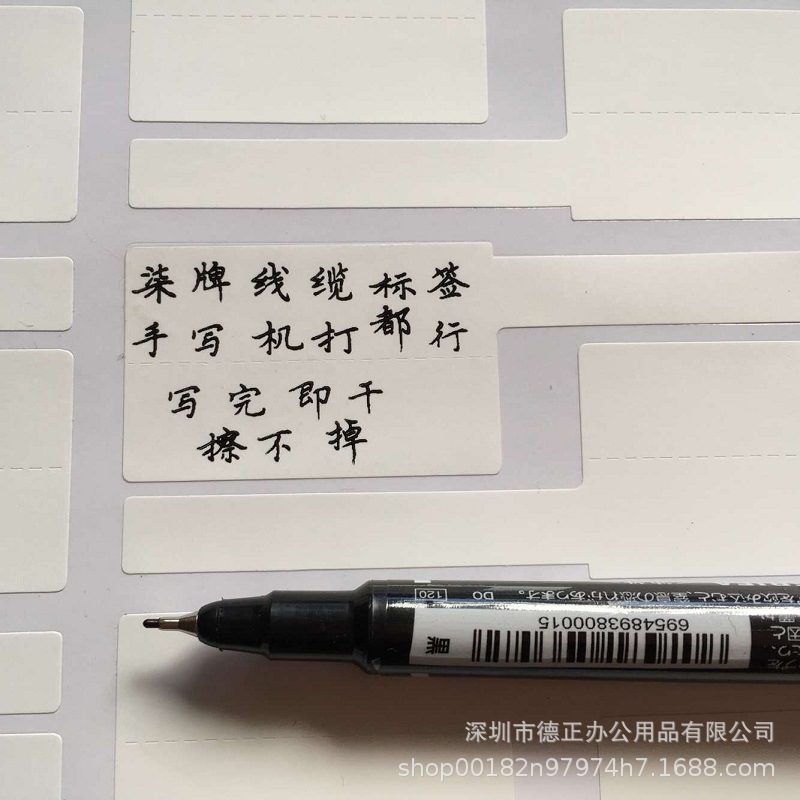 柒牌线缆标签
手写机打都行
写完即干
擦不掉
黑
6954893800015
DO
120
深圳市德正办公用品有限公司
shop00182n97974h7.1688.com